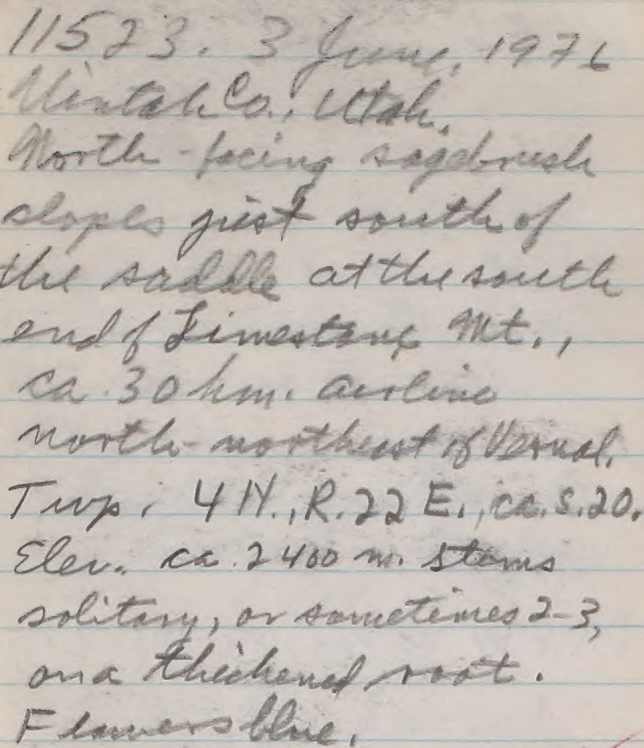 11523. 3 June, 1976
Uintah Co., Utah.
North-facing sagebrush
slopes just south of
the saddle at the south
end of Limestone Mt.,
ca. 30 km. airline
north-northeast of Vernal.
Twp. 4 N., R. 22 E., ca. S. 20.
Elev. ca. 2400 m. Stems
solitary, or sometimes 2-3,
on a thickened root.
Flowers blue.